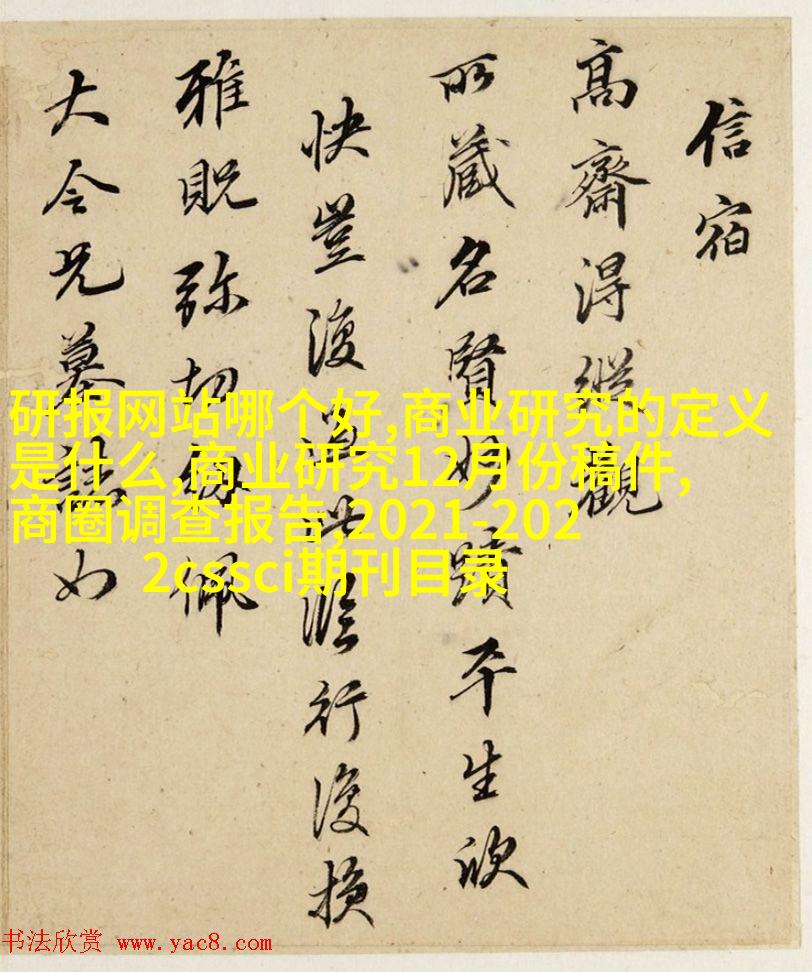 信宿
高齋得縱觀
所藏名賢妙蹟平生欣
快豈復過此臨行復損
雅貺弥切佩
大令兄墓誌如
研报网站哪个好,商业研究的定义
是什么,商业研究12月份稿件,
商圈调查报告,2021-202
2cssci期刊目录
书法欣赏 www.yac8.com